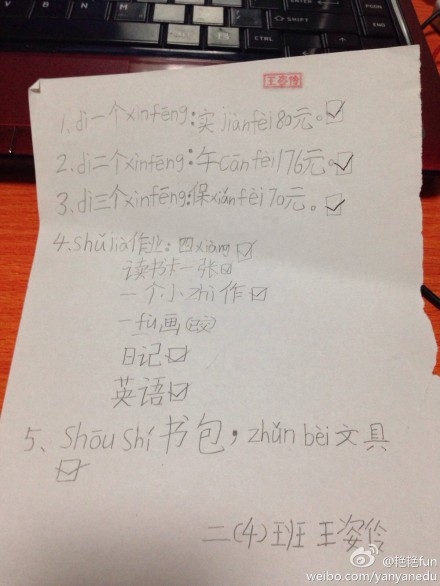 王姿伶
1、dì一个xìnfēng：实jiànfèi80元。☑
2、dì二个xìnfēng：午cānfèi176元。☑
3、dì三个xìnfēng：保xiǎnfèi70元。☑
4、shǔjià作业：四xiàng☑
读书卡一张☑
一个小zhì作☑
一fú画(已交)
日记☑
英语☑
5、Shōu Shí书包，zhǔn bèi文具
☑
二(4)班 王姿伶
@艳艳fun
weibo.com/yanyanedu